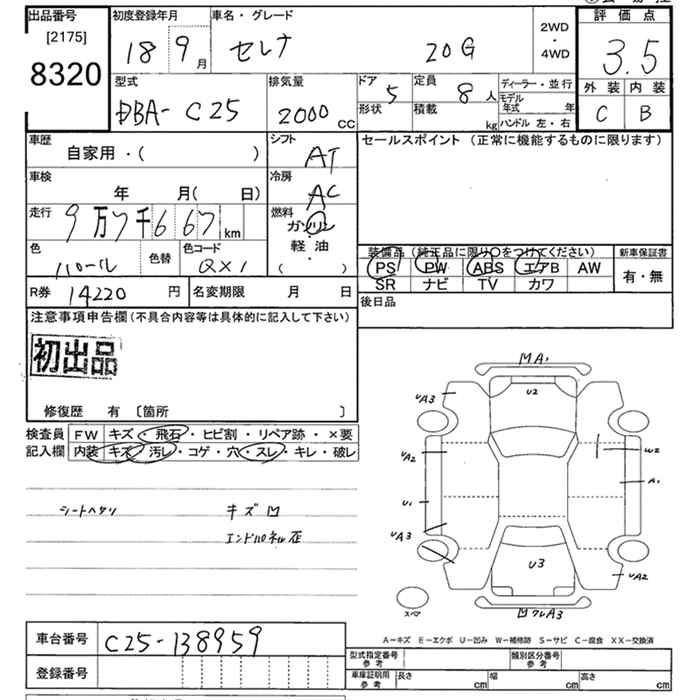 出品番号
[2175]
8320
初度登録年月
18 9 月
車名・グレード
セレナ 20G
2WD
・
4WD
評価点
3.5
外装 内装
C B
型式
DBA- C25
排気量
2000 CC
ドア 5
形状
定員 8 人
積載 kg
ディーラー・並行
モデル年式 年
ハンドル 左・右
車歴
自家用・( )
シフト
AT
セールスポイント (正常に機能するものに限ります)
車検
年 月( 日)
冷房
AC
走行
9万7千667 km
燃料
ガソリン
軽油
( )
色
パール
色替
色コード
QX1
装備品 (純正品に限り○をつけてください)
PS PW ABS エアB AW
SR ナビ TV カワ
新車保証書
有・無
R券 14220 円
名変期限 月 日
後日品
注意事項申告欄(不具合内容等は具体的に記入して下さい)
初出品
修復歴 有 〔箇所 〕
検査員記入欄
FW キズ・飛石・ヒビ割・リペア跡・×要
内装 キズ・汚レ・コゲ・穴・スレ・キレ・破レ
シートヘタリ
キズ凹
エンドパネル歪
凹A1
UA3
U2
UA2
W2
A1
U1
UA3
U3
UA2
スペア
凹クレA3
A-キズ E-エクボ U-凹み W-補修跡 S-サビ C-腐食 XX-交換済
車台番号 C25-138959
登録番号
型式指定番号
参考
類別区分番号
参考
車庫証明用
参考
長さ cm
幅 cm
高さ cm